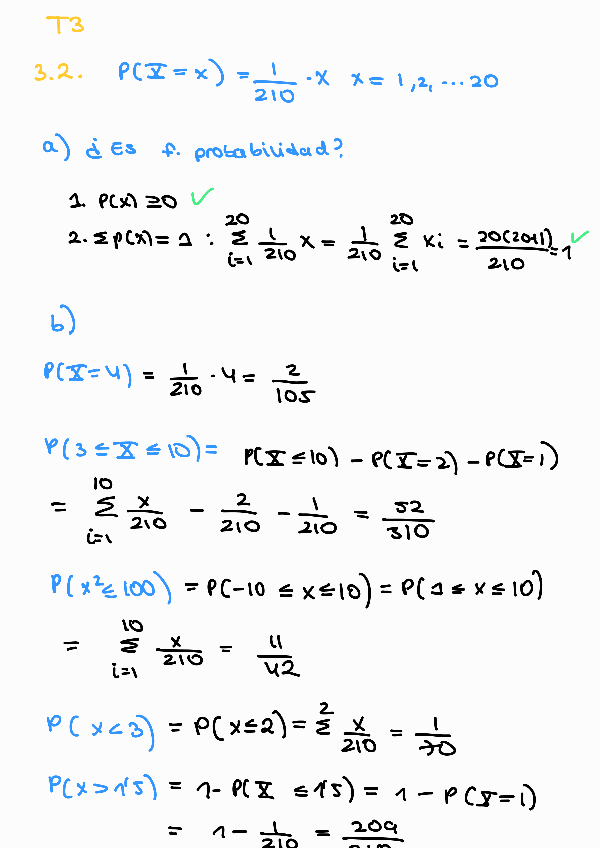 T3
3.2. P(X = x) = 1/210 · x x = 1, 2, ... 20
a) ¿Es f. probabilidad?
1. P(x) ≥ 0 ✓
2. Σp(x) = 1 : Σ_{i=1}^{20} 1/210 x = 1/210 Σ_{i=1}^{20} xi = 20(20+1)/210 = 1 ✓
b)
P(X = 4) = 1/210 · 4 = 2/105
P(3 ≤ X ≤ 10) = P(X ≤ 10) - P(X = 2) - P(X = 1)
= Σ_{i=1}^{10} x/210 - 2/210 - 1/210 = 52/310
P(x² ≤ 100) = P(-10 ≤ x ≤ 10) = P(1 ≤ x ≤ 10)
= Σ_{i=1}^{10} x/210 = 11/42
P(x < 3) = P(x ≤ 2) = Σ^{2} x/210 = 1/70
P(x > 1'5) = 1 - P(X ≤ 1'5) = 1 - P(X = 1)
= 1 - 1/210 = 209/210